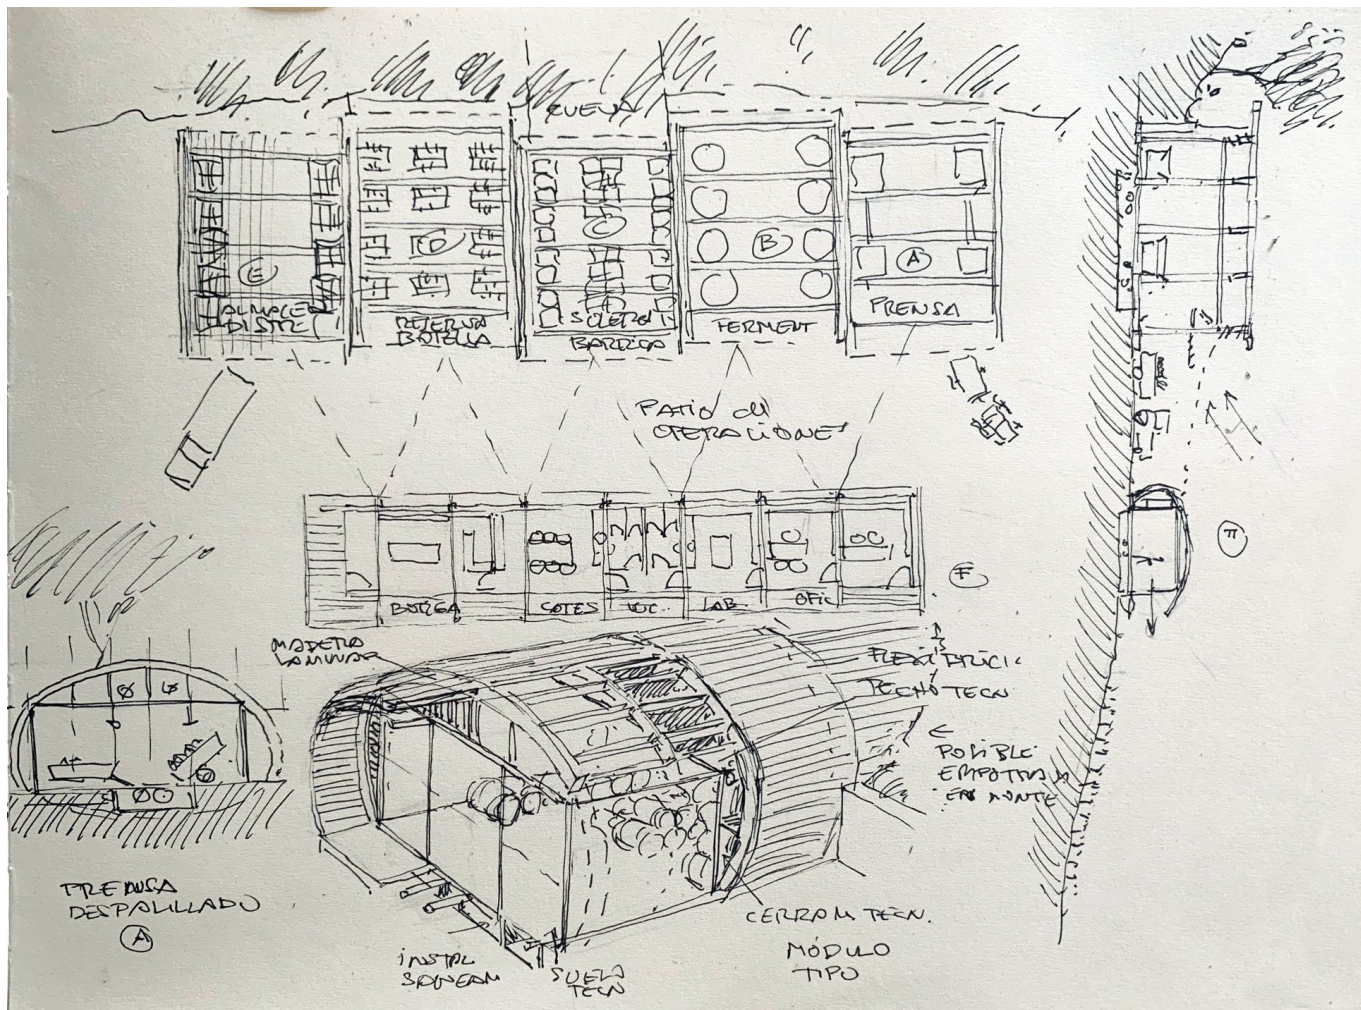 CUEVA
E
ALMACEN
DISTRI
D
RESERVA
BOTELLA
C
SOLERA
BARRICA
B
FERMENT
A
PRENSA
PATIO de
OPERACIONES
BODEGA
CATES
WC
LAB.
OFIC
F
MADERA
LAMINAR
TECHO TECN
POSIBLE
EMPOTRAM
EN MONTE
PRENSA
DESPALILLADO
A
INSTAL
SANEAM
SUELO
TECN
CERRAM TECN.
MÓDULO
TIPO